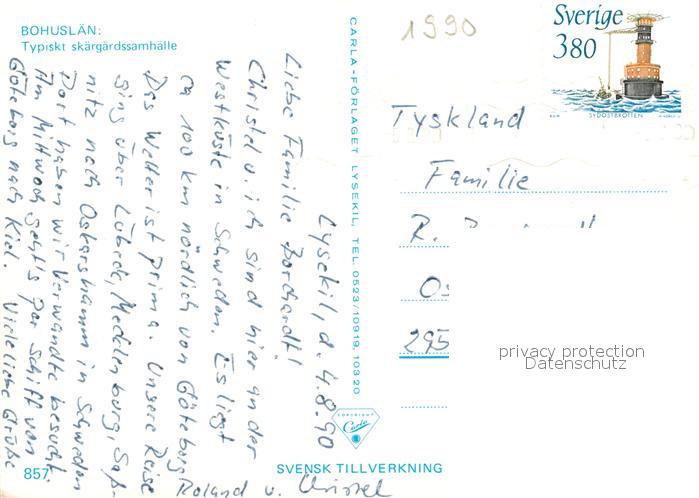 BOHUSLÄN:
Typiskt skärgårdssamhälle
Lysekil, d. 4.8.90
Liebe Familie Borchardt!
Christel u. ich sind hier an der
Westküste in Schweden. Es liegt
ca 100 km nördlich von Göteborg
Das Wetter ist prima. Unsere Reise
ging über Lübeck, Mecklenburg, Saß-
nitz nach Oskarshamn in Schweden
Dort haben wir Verwandte besucht.
Am Mittwoch geht's per Schiff von
Göteborg nach Kiel. Viele liebe Grüße
Roland u. Christel
857
CARLA-FÖRLAGET LYSEKIL, TEL. 0523/10919, 10320
COPYRIGHT
Carla
SVENSK TILLVERKNING
1990
Sverige
380
SYDOSTBROTTEN
Tyskland
Familie
R.
295
privacy protection
Datenschutz